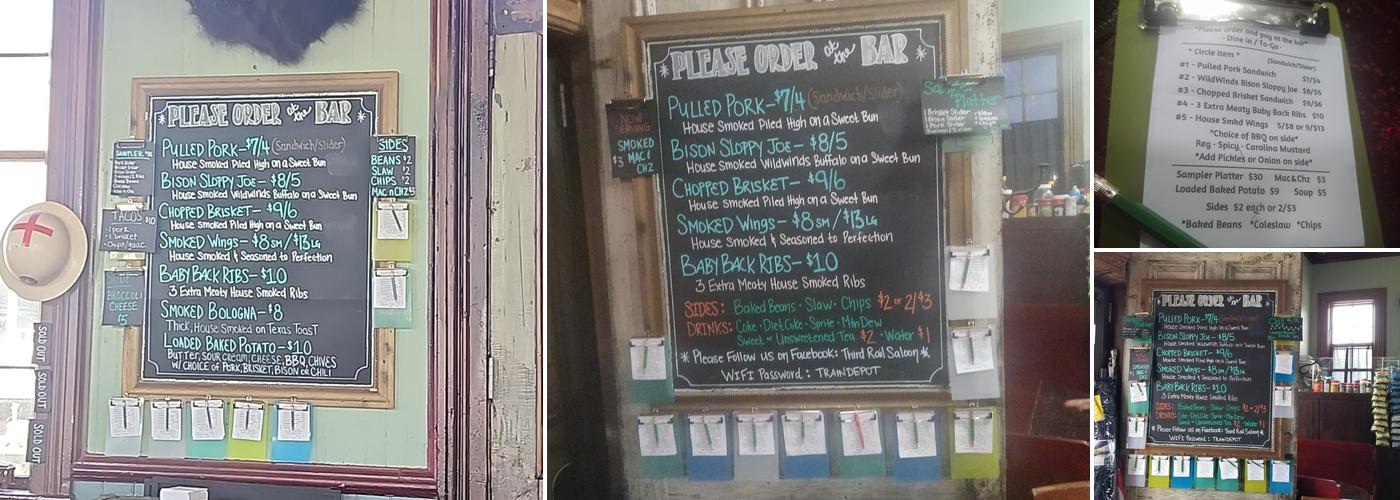 PLEASE ORDER at the BAR
PULLED PORK-$7/4 (Sandwich/Slider)
House Smoked Piled High on a Sweet Bun
BISON SLOPPY JOE-$8/5
House Smoked WildWinds Buffalo on a Sweet Bun
CHOPPED BRISKET-$9/6
House Smoked Piled High on a Sweet Bun
SMOKED WINGS-$8 SM/$13 LG
House Smoked & Seasoned to Perfection
BABY BACK RIBS-$10
3 Extra Meaty House Smoked Ribs
SMOKED BOLOGNA-$8
Thick, House Smoked on Texas Toast
LOADED BAKED POTATO-$10
BUTTER, SOUR CREAM, CHEESE, BBQ, CHIVES
W/ CHOICE OF PORK, BRISKET, BISON OR CHILI
SAMPLER
TACOS $10
-1 pork
-1 brisket
-Chips/guac
BROCCOLI
CHEESE
$5
SIDES
BEANS $2
SLAW $2
CHIPS $2
MAC n CHZ $3
SOLD OUT
SOLD OUT
SOLD OUT
PLEASE ORDER at the BAR
PULLED PORK-$7/4 (Sandwich/Slider)
House Smoked Piled High on a Sweet Bun
BISON SLOPPY JOE-$8/5
House Smoked WildWinds Buffalo on a Sweet Bun
CHOPPED BRISKET-$9/6
House Smoked Piled High on a Sweet Bun
SMOKED WINGS-$8 SM/$13 LG
House Smoked & Seasoned to Perfection
BABY BACK RIBS-$10
3 Extra Meaty House Smoked Ribs
SIDES: Baked Beans · Slaw · Chips $2 or 2/$3
DRINKS: Coke · Diet Coke · Sprite · Mtn Dew
Sweet or Unsweetened Tea $2 · Water $1
* Please Follow us on Facebook: Third Rail Saloon *
WIFI Password: TRAINDEPOT
NOW
SERVING
SMOKED
$3 MAC &
CHZ
Sampler
Platter
1 Brisket Slider
*Please order and pay at the bar*
· Dine in / To-Go ·
* Circle Item *
(Sandwich/Slider)
#1 - Pulled Pork Sandwich $7/$4
#2 - WildWinds Bison Sloppy Joe $8/$5
#3 - Chopped Brisket Sandwich $9/$6
#4 - 3 Extra Meaty Baby Back Ribs $10
#5 - House Smkd Wings 5/$8 or 9/$13
*Choice of BBQ on side*
Reg · Spicy · Carolina Mustard
*Add Pickles or Onion on side*
Sampler Platter $30 Mac&Chz $3
Loaded Baked Potato $9 Soup $5
Sides $2 each or 2/$3
*Baked Beans *Coleslaw *Chips
PLEASE ORDER at the BAR
PULLED PORK-$7/4 (Sandwich/Slider)
House Smoked Piled High on a Sweet Bun
BISON SLOPPY JOE-$8/5
House Smoked WildWinds Buffalo on a Sweet Bun
CHOPPED BRISKET-$9/6
House Smoked Piled High on a Sweet Bun
SMOKED WINGS-$8 SM/$13 LG
House Smoked & Seasoned to Perfection
BABY BACK RIBS-$10
3 Extra Meaty House Smoked Ribs
SIDES: Baked Beans · Slaw · Chips $2 or 2/$3
DRINKS: Coke · Diet Coke · Sprite · Mtn Dew
Sweet or Unsweetened Tea $2 · Water $1
* Please Follow us on Facebook: Third Rail Saloon *
WIFI Password: TRAINDEPOT